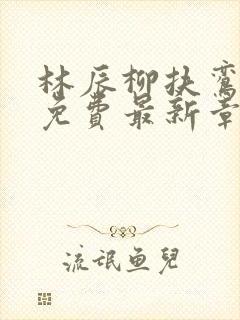 林辰柳扶鸾
免费最新章
流氓鱼兒